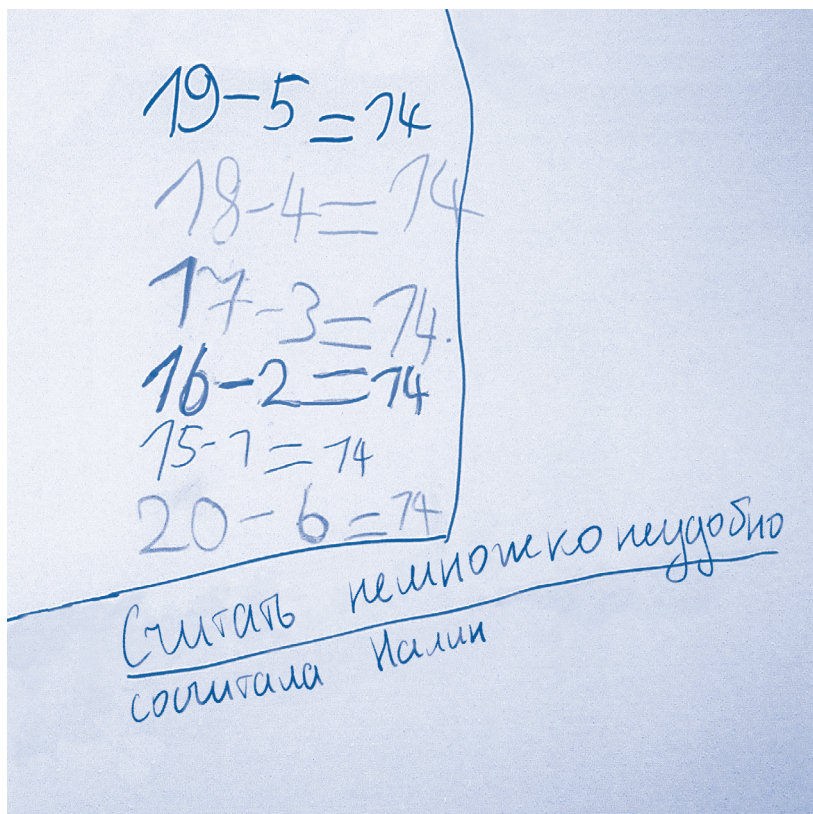 19-5=14
18-4=14
17-3=14.
16-2=14
15-1=14
20-6=14
Считать немножко неудобно
сосчитала Налин